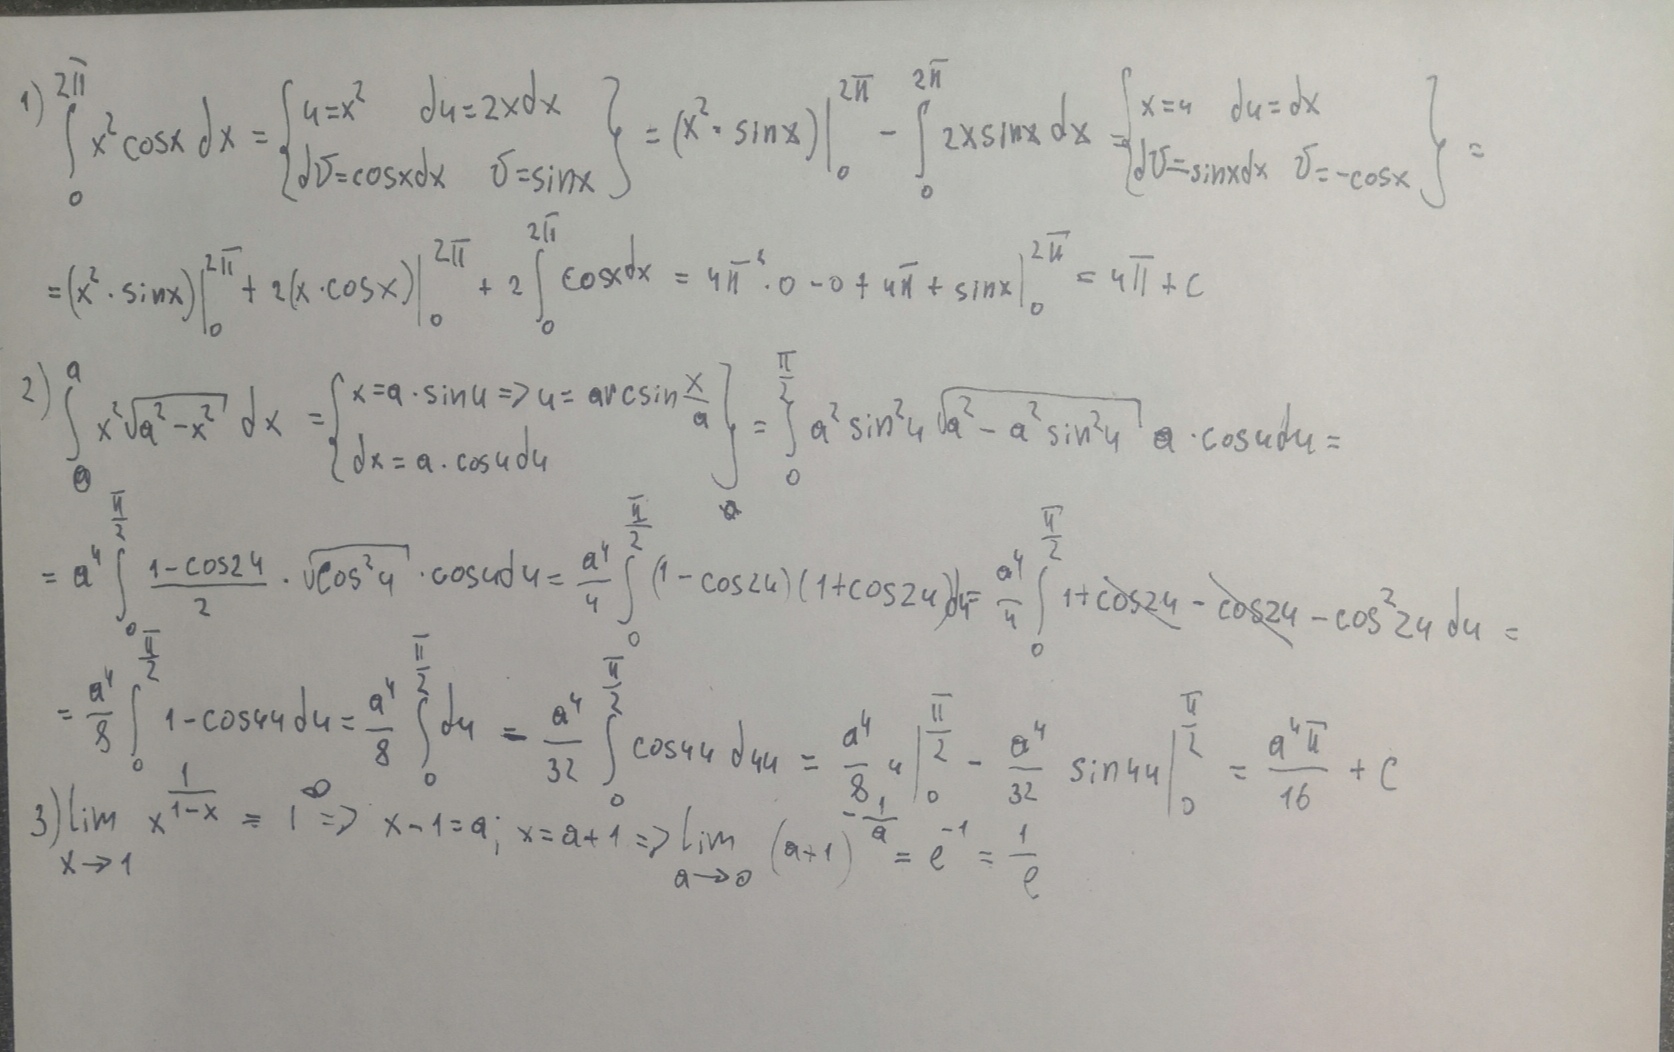 1) ∫₀^{2π} x² cosx dx = {u=x² du=2xdx dv=cosxdx v=sinx} = (x²·sinx)|₀^{2π} − ∫₀^{2π} 2xsinx dx = {x=u du=dx dv=sinxdx v=-cosx} =
= (x²·sinx)|₀^{2π} + 2(x·cosx)|₀^{2π} + 2∫₀^{2π} cosxdx = 4π²·0 − 0 + 4π + sinx|₀^{2π} = 4π + c
2) ∫₀^a x²√(a²−x²) dx = {x=a·sinu => u=arcsin x/a dx=a·cosudu} = ∫₀^{π/2} a²sin²u √(a²−a²sin²u) a·cosudu =
= a⁴ ∫₀^{π/2} (1−cos2u)/2 · √(cos²u) · cosudu = a⁴/4 ∫₀^{π/2} (1−cos2u)(1+cos2u)du = a⁴/4 ∫₀^{π/2} 1+cos2u − cos2u − cos²2u du =
= a⁴/8 ∫₀^{π/2} 1−cos4u du = a⁴/8 ∫₀^{π/2} du − a⁴/32 ∫₀^{π/2} cos4u d4u = a⁴/8 u|₀^{π/2} − a⁴/32 sin4u|₀^{π/2} = a⁴π/16 + C
3) lim_{x→1} x^{1/(1−x)} = 1^∞ => x−1=a; x=a+1 => lim_{a→0} (a+1)^{−1/a} = e^{−1} = 1/e